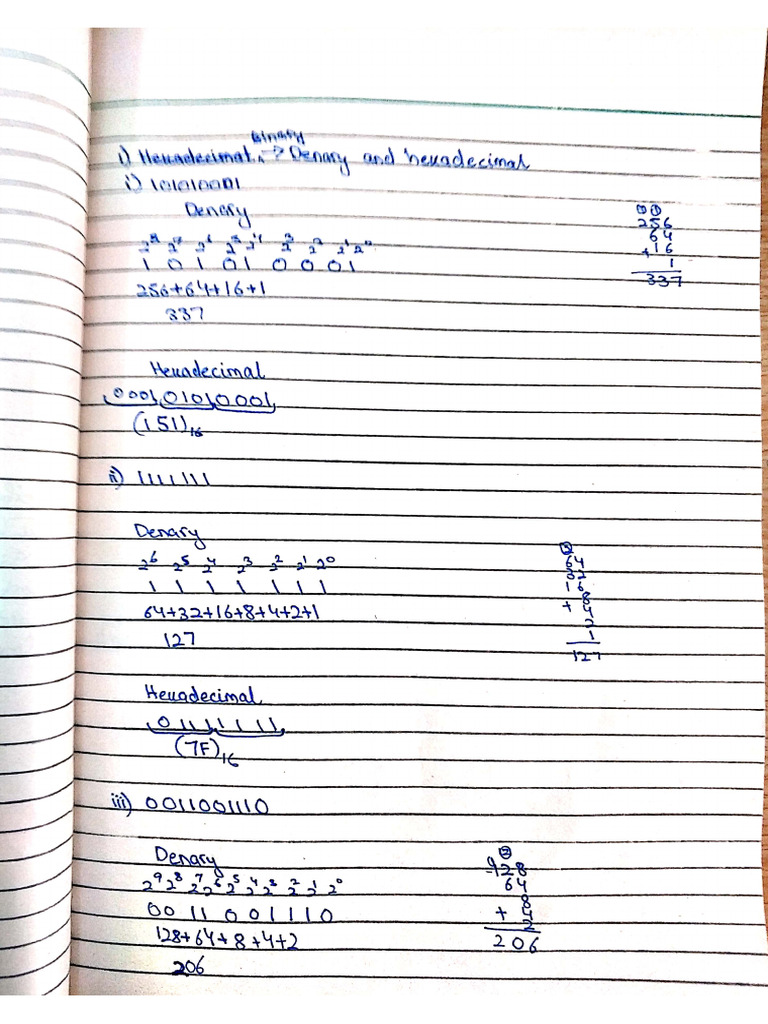 1) Hexadecimal Binary → Denary and hexadecimal
i) 101010001
Denary
2⁸ 2⁷ 2⁶ 2⁵ 2⁴ 2³ 2² 2¹ 2⁰
1 0 1 0 1 0 0 0 1
256+64+16+1
337
① ①
256
64
+ 16
1
337
Hexadecimal
0001 0101 0001
(151)₁₆
ii) 1111111
Denary
2⁶ 2⁵ 2⁴ 2³ 2² 2¹ 2⁰
1 1 1 1 1 1 1
64+32+16+8+4+2+1
127
②
64
32
16
8
+ 4
2
1
127
Hexadecimal
0111 1111
(7F)₁₆
iii) 0011001110
Denary
2⁹ 2⁸ 2⁷ 2⁶ 2⁵ 2⁴ 2³ 2² 2¹ 2⁰
00 11 001110
128+64+8+4+2
206
②
128
64
8
+ 4
2
206